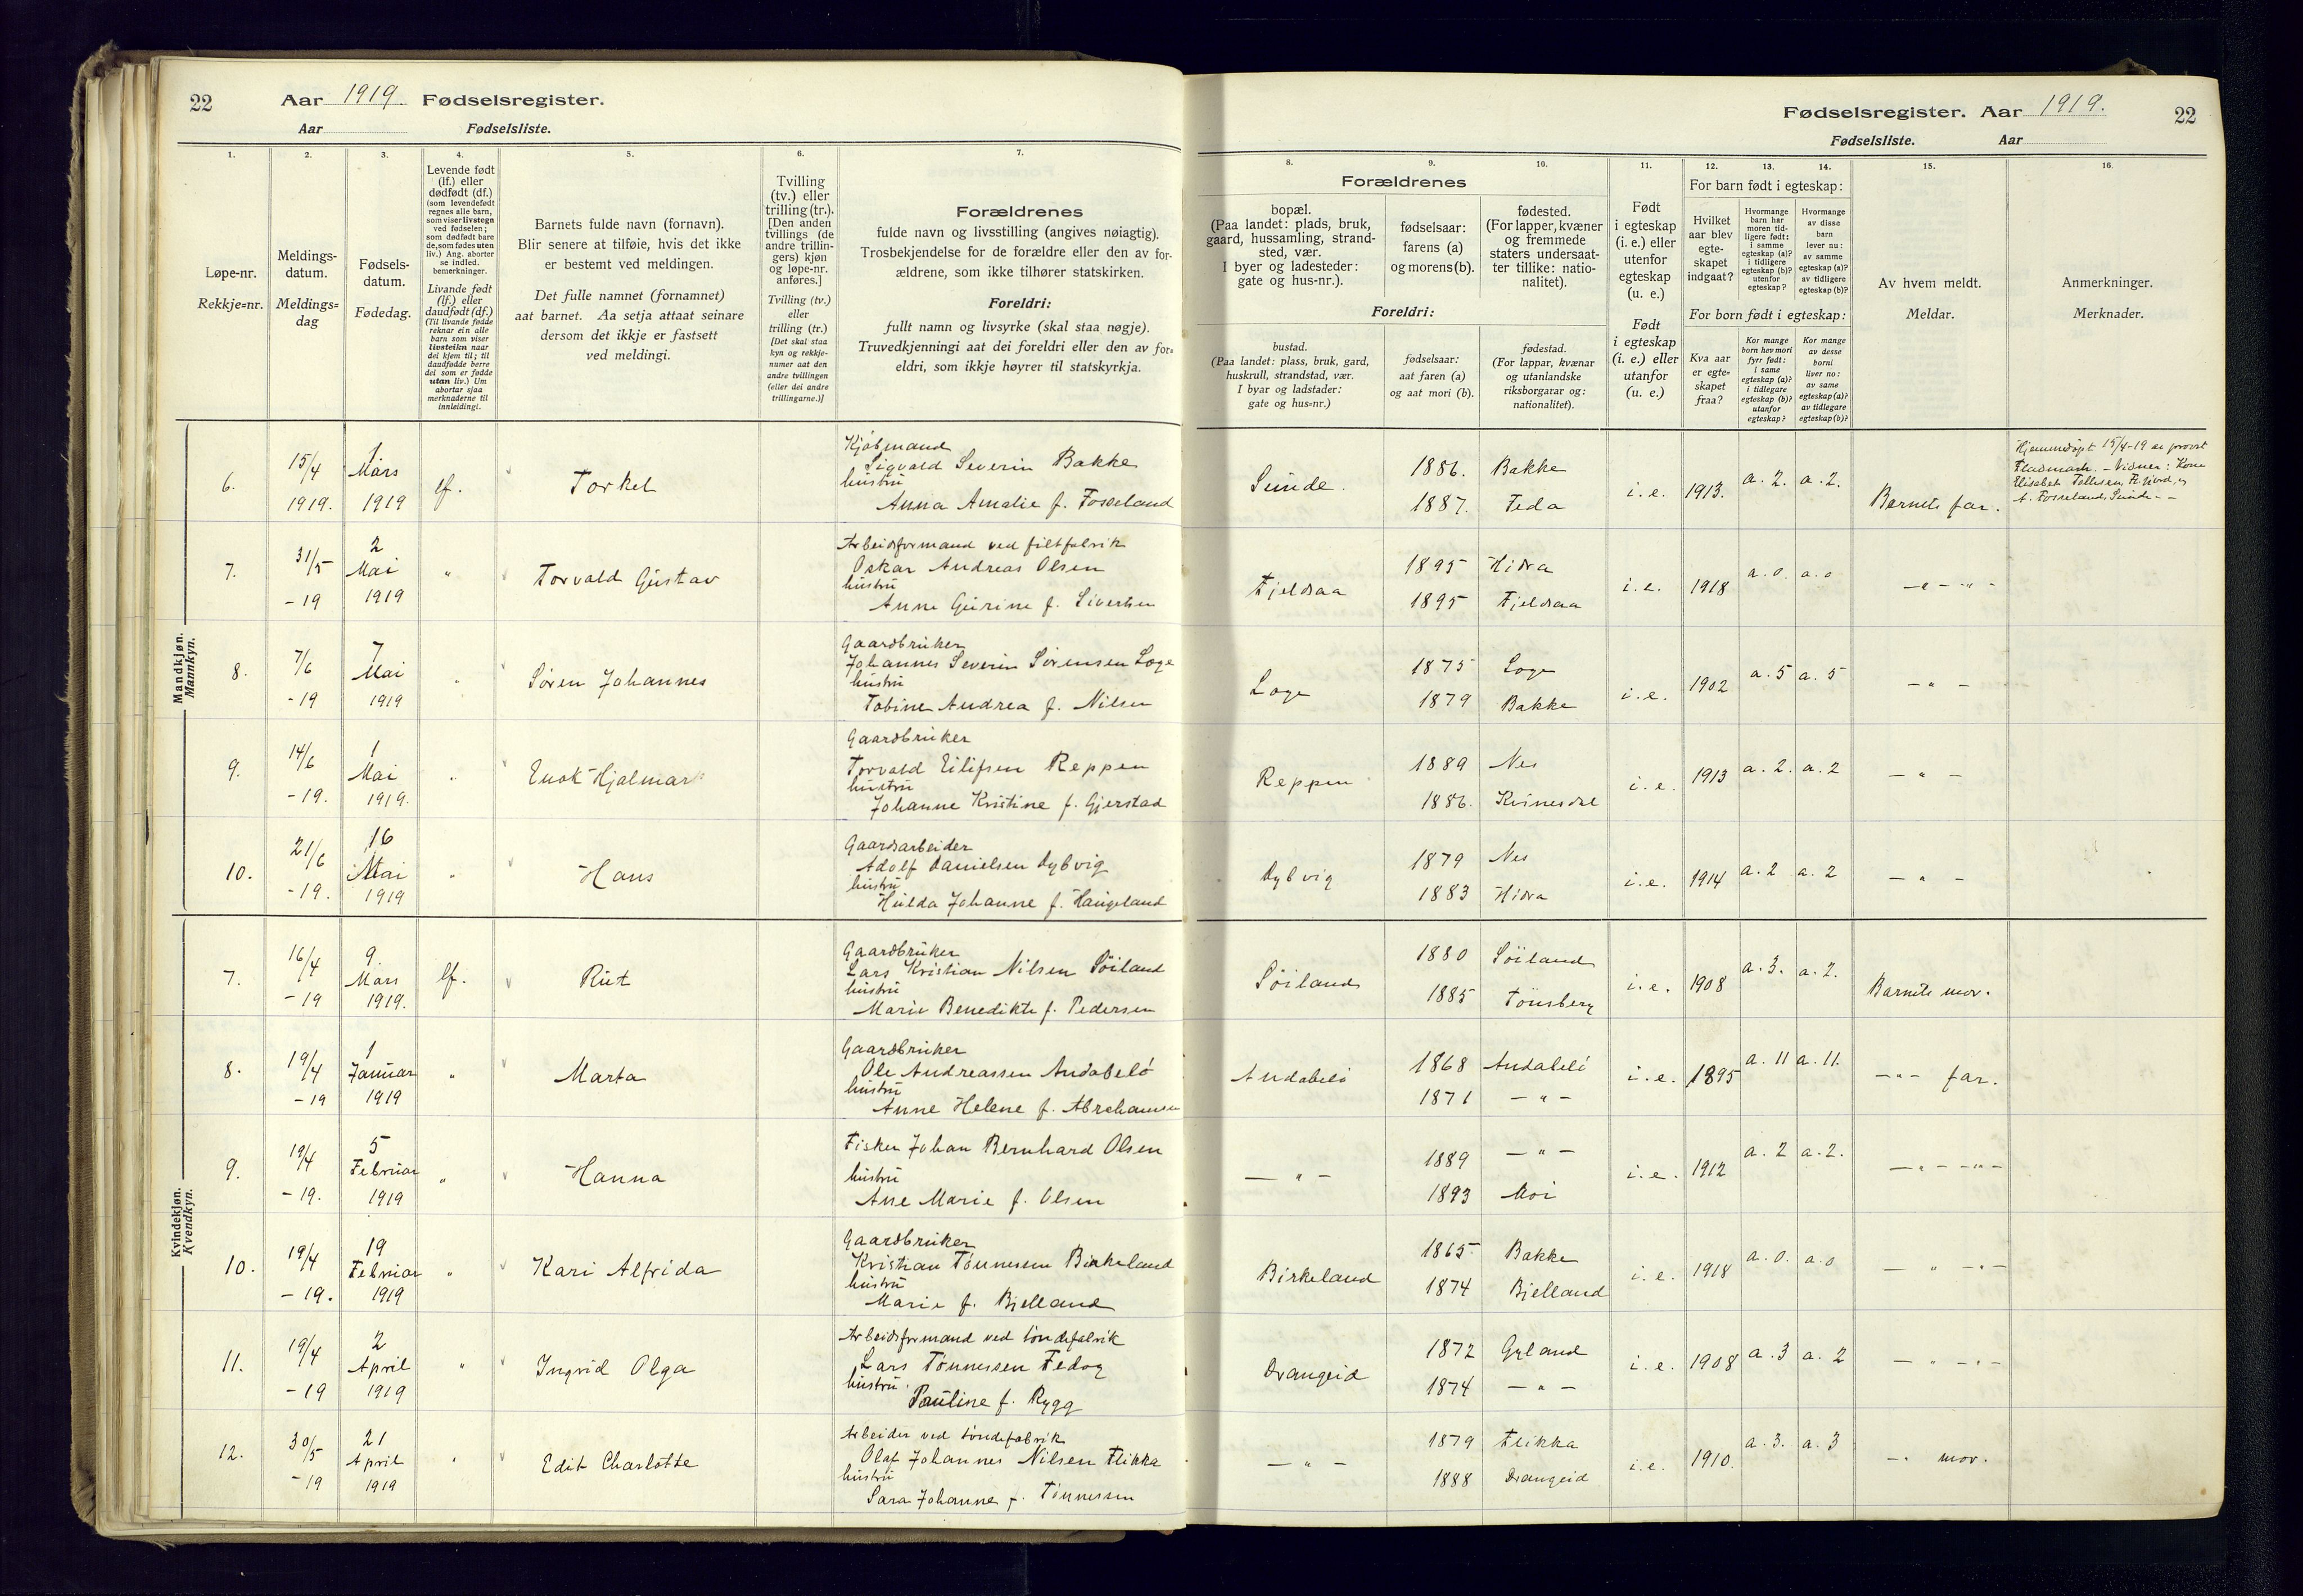 22 Aar 1919. Fødselsregister.
Aar Fødselsliste.
1.
2.
3.
4.
5.
6.
7.
Løpe-nr.
Rekkje=nr.
Meldings-
datum.
Meldings=
dag
Fødsels-
datum.
Fødedag.
Levende født
(lf.) eller
dødfødt (df.)
(som levendefødt
regnes alle barn,
som viser livstegn
ved fødselen;
som dødfødt bare
de, som fødes uten
liv.) Ang. aborter
se indled.
bemerkninger.
Livande født
(lf.) eller
daudfødt (df.)
(Til livande fødde
reknar ein alle
barn som viser
livsteikn naar
dei kjem til; til
daudfødde berre
dei som er fødde
utan liv.) Um
abortar sjaa
merknaderne til
innleidingi.
Barnets fulde navn (fornavn).
Blir senere at tilføie, hvis det ikke
er bestemt ved meldingen.
Det fulle namnet (fornamnet)
aat barnet. Aa setja attaat seinare
dersom det ikkje er fastsett
ved meldingi.
Tvilling
(tv.) eller
trilling (tr.).
[Den anden
tvillings (de
andre trillin-
gers) kjøn
og løpe-nr.
anføres.]
Tvilling (tv.)
eller
trilling (tr.)
[Det skal staa
kyn og rekkje-
numer aat den
andre tvillingen
(eller dei andre
trillingarne.)]
Forældrenes
fulde navn og livsstilling (angives nøiagtig).
Trosbekjendelse for de forældre eller den av for-
ældrene, som ikke tilhører statskirken.
Foreldri:
fullt namn og livsyrke (skal staa nøgje).
Truvedkjenningi aat dei foreldri eller den av for=
eldri, som ikkje høyrer til statskyrkja.
Mandkjøn.
Mannkyn.
6. 15/4 1919. 1 Mars 1919 lf. Torkel
Kjøbmand
Sigvald Severin Bakke
hustru
Anna Amalie f. Fosseland
7. 31/5 -19 2 Mai 1919 " Torvald Gustav
Arbeidsformand ved filtfabrik
Oskar Andreas Olsen
hustru
Anne Gurine f. Sivertsen
8. 7/6 -19 7 Mai 1919 " Søren Johannes
Gaardbruker
Johannes Severin Sørensen Loge
hustru
Tobine Andrea f. Nilsen
9. 14/6 -19. 1 Mai 1919. " Enok Hjalmar
Gaardbruker
Torvald Eilifsen Reppen
hustru
Johanne Kristine f. Gjerstad
10. 21/6 -19. 16 Mai 1919 " Hans
Gaardarbeider
Adolf Danielsen Dybvig
hustru
Hulda Johanne f. Haugeland
Kvindekjøn.
Kvendkyn.
7. 16/4 -19 9 Mars 1919. lf. Rut
Gaardbruker
Lars Kristian Nilsen Söiland
hustru
Marie Benedikte f. Pedersen
8. 19/4 -19 1 Januar 1919 " Marta
Gaardbruker
Ole Andreassen Andabelö
hustru
Anne Helene f. Abrahamsen
9. 19/4 -19. 5 Februar 1919 " Hanna
Fisker Johan Bernhard Olsen
hustru
Ane Marie f. Olsen
10. 19/4 -19. 19 Februar 1919 " Kari Alfrida
Gaardbruker
Kristian Tönnesen Birkeland
hustru
Marie f. Bjelland
11. 19/4 -19 2 April 1919 " Ingrid Olga
Arbeidsformand ved töndefabrik
Lars Tönnessen Fedog
hustru
Pauline f. Rygg
12. 30/5 -19 21 April 1919 " Edit Charlotte
Arbeider ved töndefabrik
Olaf Johannes Nilsen Flikka
hustru
Sara Johanne f. Tönnessen
Fødselsregister. Aar 1919. 22
Fødselsliste. Aar
8.
9.
10.
11.
12.
13.
14.
15.
16.
Forældrenes
bopæl.
(Paa landet: plads, bruk,
gaard, hussamling, strand-
sted, vær.
I byer og ladesteder:
gate og hus-nr.).
fødselsaar:
farens (a)
og morens (b).
fødested.
(For lapper, kvæner
og fremmede
staters undersaat-
ter tillike: natio-
nalitet).
Foreldri:
bustad.
(Paa landet: plass, bruk, gard,
huskrull, strandstad, vær.
I byar og ladstader:
gate og hus=nr.)
fødselsaar:
aat faren (a)
og aat mori (b).
fødestad.
(For lappar, kvænar
og utanlandske
riksborgarar og:
nationalitet).
Født
i egteskap
(i. e.) eller
utenfor
egteskap
(u. e.)
Født
i egteskap
(i. e.) eller
utanfor
(u. e.)
For barn født i egteskap:
Hvilket
aar blev
egte-
skapet
indgaat?
Hvormange
barn har
moren tid-
ligere født:
i samme
egteskap (a)?
i tidligere
egteskap (b)?
utenfor
egteskap?
Hvormange
av disse
barn
lever nu:
av samme
egteskap (a)?
av tidligere
egteskap (b)?
For born født i egteskap:
Kva aar
er egte=
skapet
fraa?
Kor mange
born hev mori
fyrr født:
i same
egteskap (a)?
i tidlegare
egteskap (b)?
utanfor
egteskap?
Kor mange
av desse
borni
liver no:
av same
egteskap (a)?
av tidlegare
egteskap (b)?
Av hvem meldt.
Meldar.
Anmerkninger.
Merknader.
Sunde. 1886. Bakke
1887. Feda
i. e. 1913. a. 2. a. 2. Barnets far.
Hjemmedøpt 15/4-19 av provst
Fladmark. - Vidner: Kone
Elisabet Tollefsen,
A. Fosseland, Sunde - -
Fjeldsaa 1895 Hidra
1895 Fjeldsaa
i. e. 1918 a. 0. a. 0 - " - " -
Loge 1875 Loge
1879 Bakke
i. e. 1902 a. 5 a. 5 - " -
Reppen 1889 Nes
1886. Kvinesdal
i. e. 1913 a. 2. a. 2 - " -
Dybvig 1879 Nes
1883 Hidra
i. e. 1914 a. 2 a. 2 - " -
Söiland 1880 Söiland
1885 Tönsberg
i. e. 1908 a. 3. a. 2. Barnets mor.
Andabelö 1868 Andabelö
1871 - " -
i. e. 1895 a. 11 a. 11. - " - far.
- " - 1889 - " -
1893 Moi
i. e. 1912 a. 2 a. 2. - " - - " -
Birkeland 1865 Bakke
1874 Bjelland
i. e. 1918 a. 0. a. 0 - " - " -
Drangeid 1872 Gyland
1874 - " -
i. e. 1908 a. 3 a. 2 - " - " -
- " - 1879 Flikka
1888 Drangeid
i. e. 1910. a. 3. a. 3 - " mor.